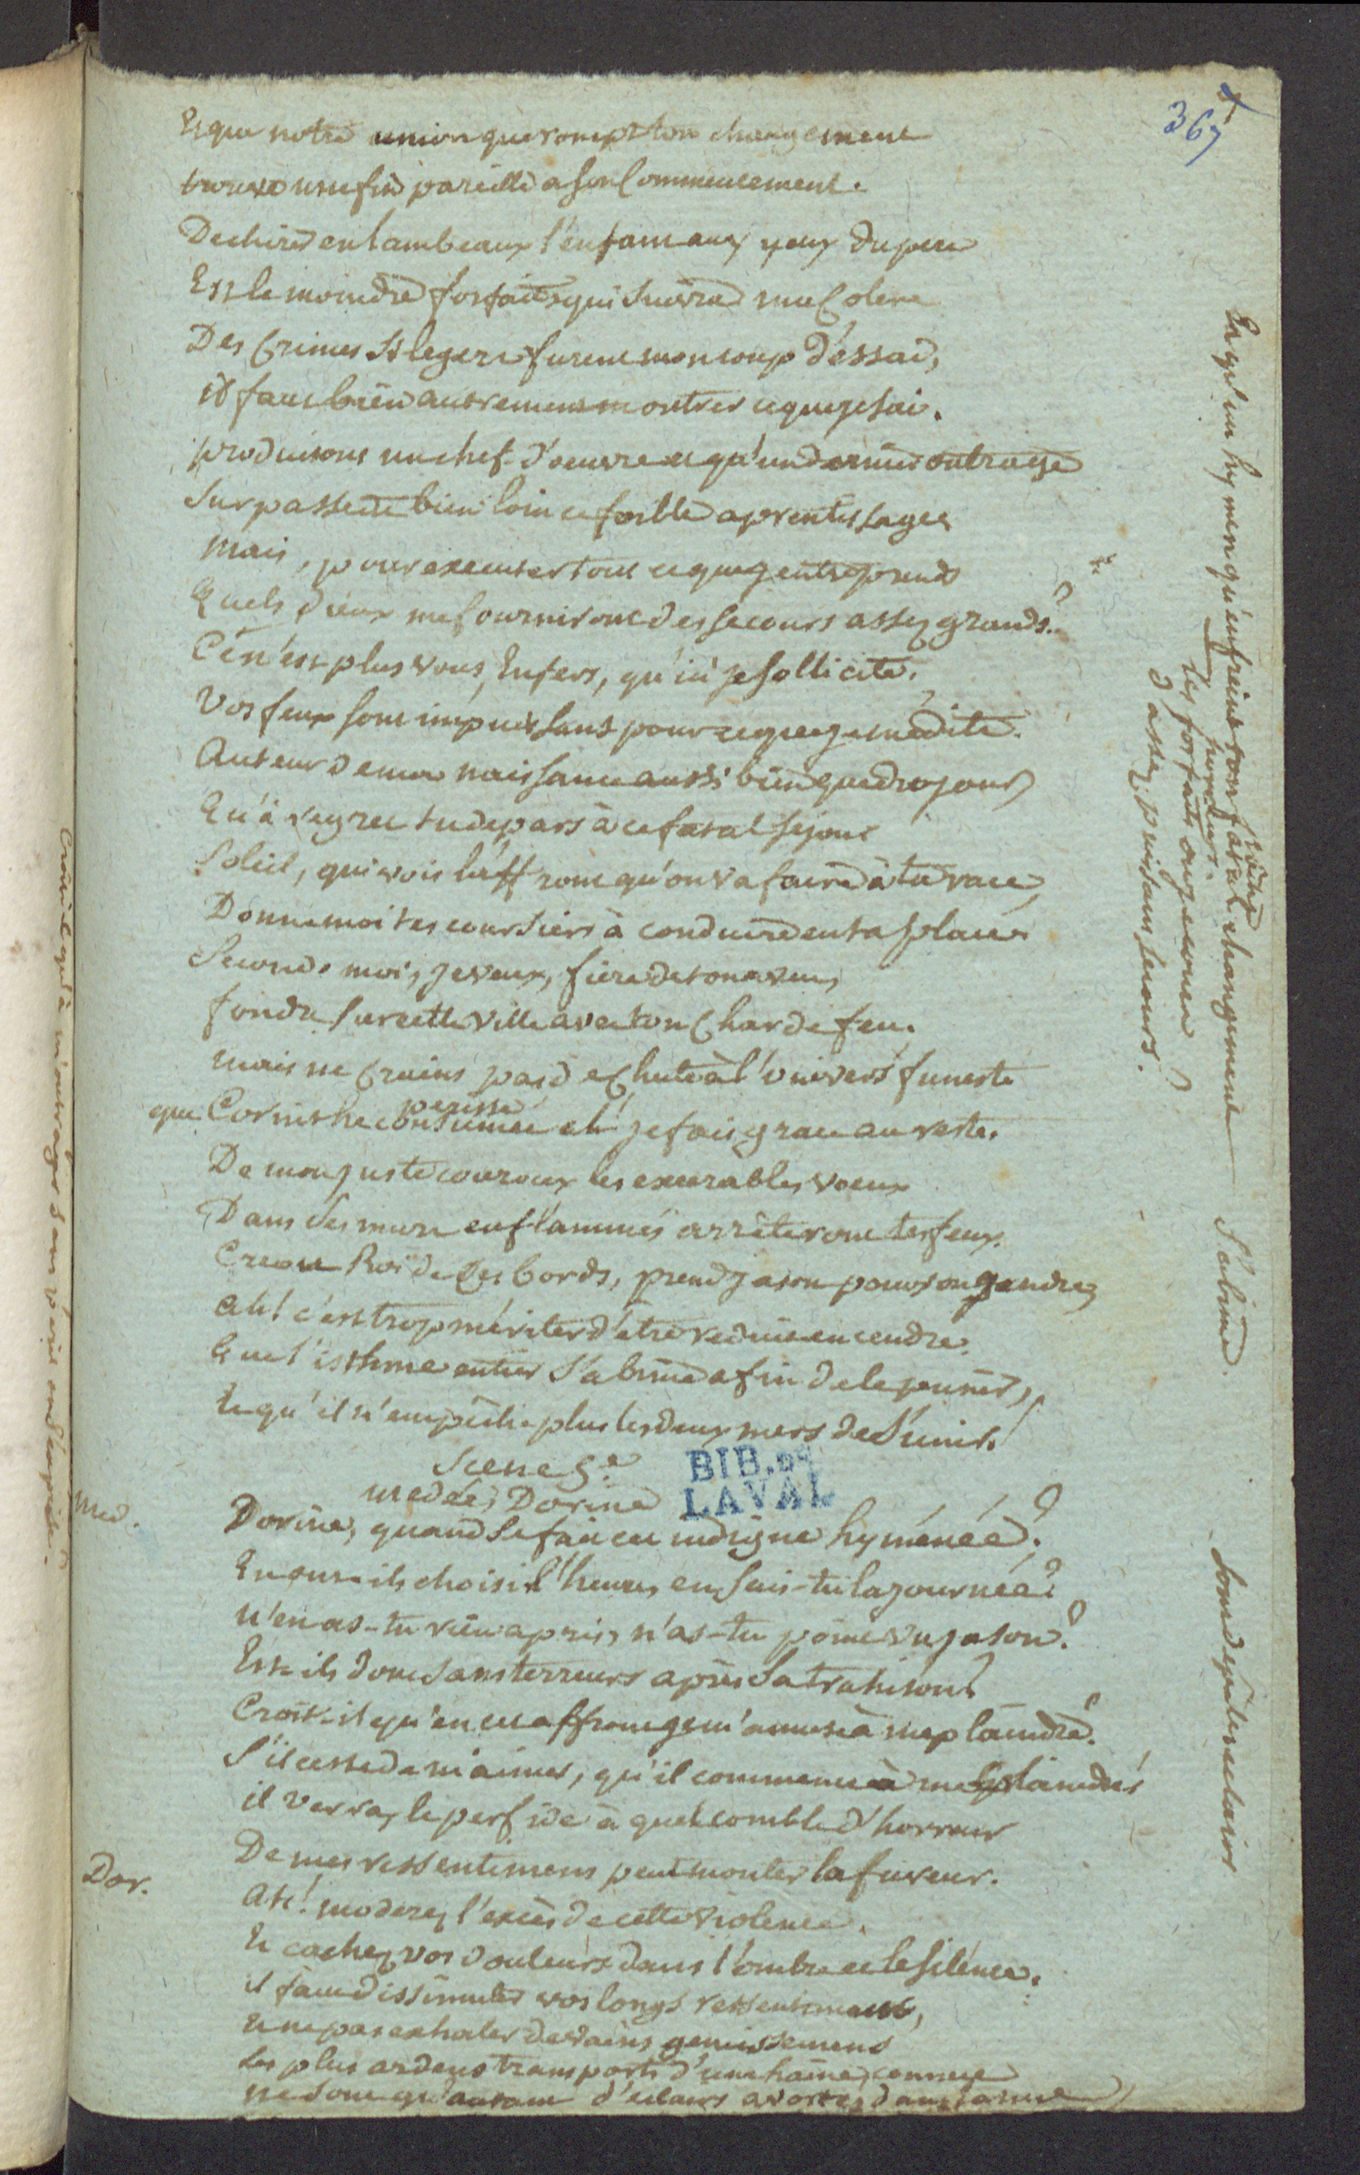 367
Et que notre union que rompt ton changement
trouve une fin pareille a son Commencement.
Dechirer en lambeaux l'enfant aux yeux du pere
Est le moindre forfait qui suivra ma Colere
Des Crimes si legers furent mon coup d'essai,
il faut bien autrement montrer ce que je sai.
produisons un chef-d'oeuvre et qu'un dernier outrage
Surpasse de bien loin ce foible aprentissage
Mais, pour executer tout ce que j'entreprends
Quels dieux me fourniront des secours assez grands?
Ce n'est plus vous, Enfers, qu'ici je sollicite.
Vos feux sont impuissants pour ce que je médite.
Auteur de ma naissance aussi bien que du jour
Qu'à regret tu depars à ce fatal sejour
Soleil, qui vois l'affront qu'on va faire à ta race,
Donne moi tes coursiers à conduire en ta place
Seconde moi, je veux, fiere de ton aveu,
fondre sur cette ville avec ton Char de feu.
mais ne Crains pas de Chute à l'univers funeste
perisse
que Corinthe consumée et je fais grace au reste.
De mon juste couroux les execrables voeux
Dans ses murs enflammés arrêteront tes feux.
Creon Roi de Ces bords, prend Jason pour son gendre,
Ah! c'est trop mériter d'être reduit en cendre.
Que l'isthme entier s'abime afin de le punir,
Et qu'il n'empêche plus les deux mers de s'unir!
Scene 5.e
medée, Dorine
BIB. DE
LAVAL
Med.
Dorine, quand se fait cet indigne hyménée?
En ont-ils choisi l'heure, en sais-tu la journée?
N'en as-tu rien apris, n'as-tu point vu jason?
Est-il donc sans terreurs après sa trahison?
Croit-il qu'en cet affront je m'amuse à me plaindre?
S'il cesse de m'aimer, qu'il commence à me
il verra, le perfide à quel comble d'horreur
De mes ressentimens peut monter la fureur.
Dor.
Ah! moderez l'excès de cette violence.
Et cachez vos douleurs dans l'ombre et le silence.
il faut dissimuler vos longs ressentimens,
Et ne pas exhaler de vains gemissemens
Les plus ardens transports d'une haine connue
ne sont qu'autant d'eclairs avortez dans la nue
Et qu'un hymen qu'enfreint ton fatal changement
tes forfaits
d'assez puissans secours.
S'abime.